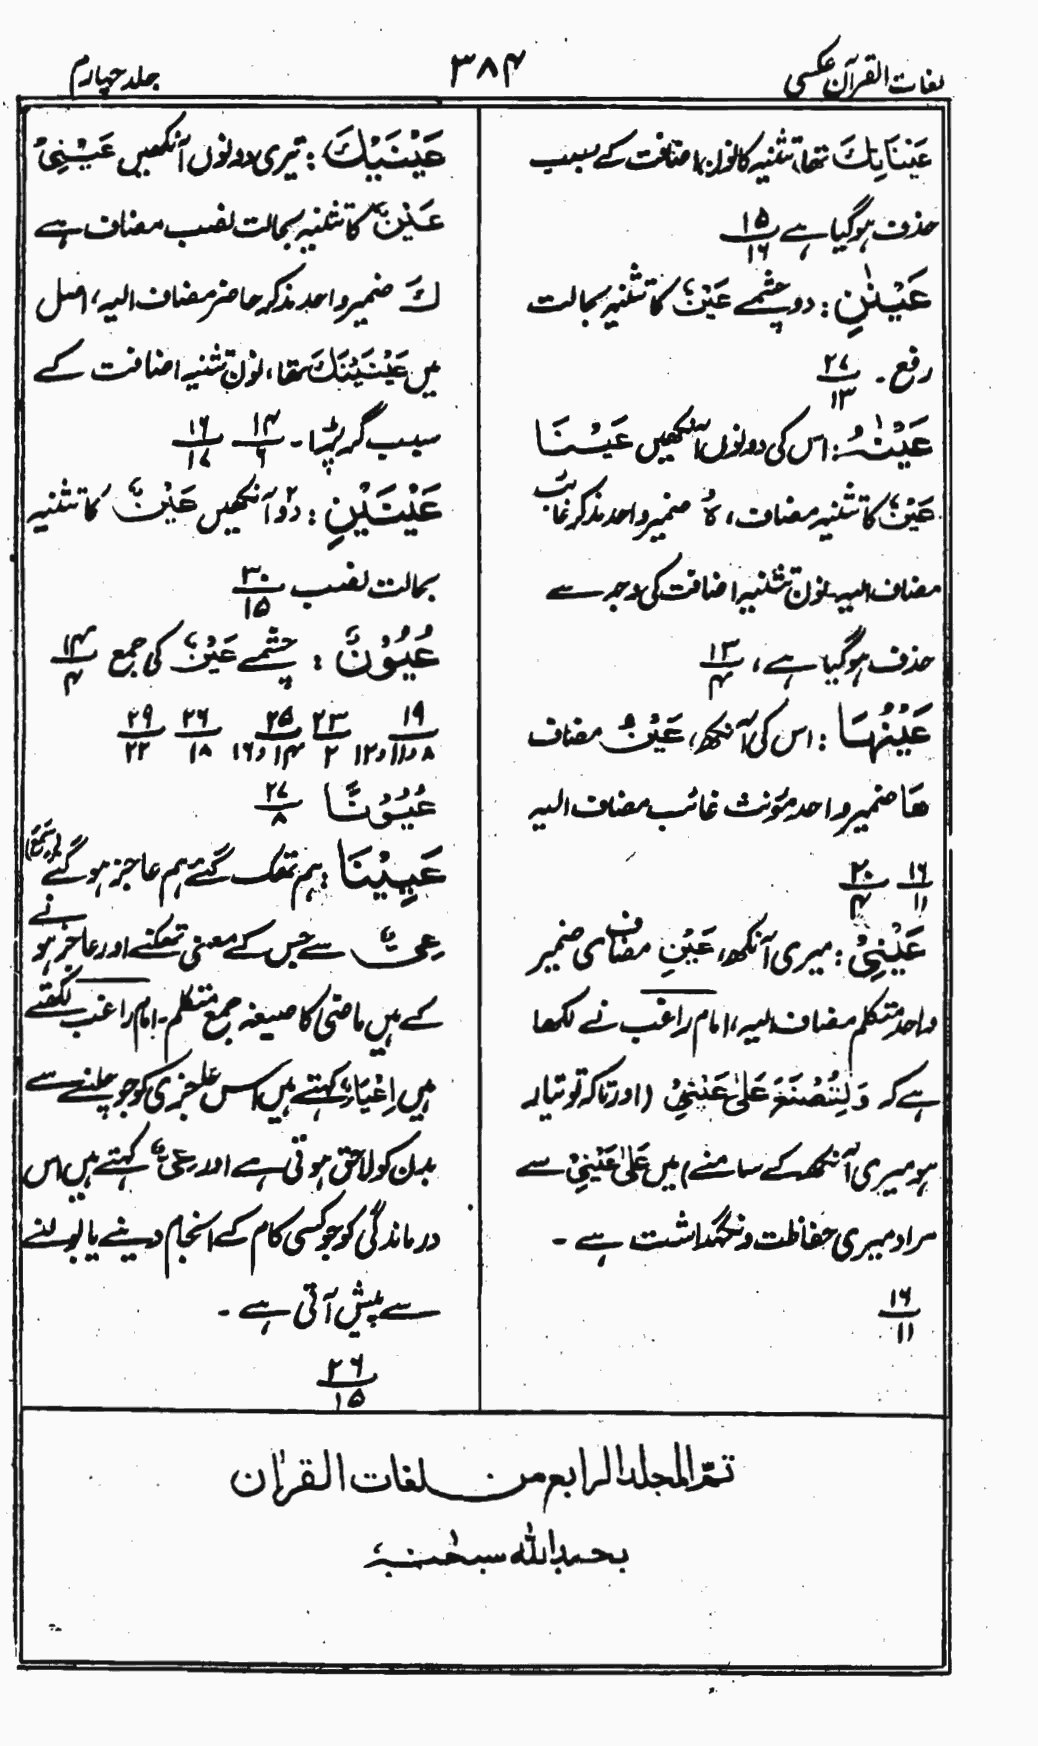 لغات القرآن عکسی
۳۸۴
جلد چہارم
عَیْنَانِكَ تھا، تثنیہ کا نون، اضافت کے سبب
حذف ہوگیا ہے ۱۵/۱۶
عَيْنٰنِ : دو چشمے عَیْنٌ کا تثنیہ بحالت
رفع ۔ ۲۷/۱۳
عَيْنٰهُ : اس کی دونوں آنکھیں عَیْنَا
عَیْنٌ کا تثنیہ مضاف، ہُ ضمیر واحد مذکر غائب
مضاف الیہ ۔ نون تثنیہ اضافت کی وجہ سے
حذف ہوگیا ہے، ۱۳/۴
عَيْنُهَا : اس کی آنکھ، عَیْنُ مضاف
ھَا ضمیر واحد مؤنث غائب مضاف الیہ
۱۶/۱۱ ۲۰/۴
عَيْنِيْ : میری آنکھ، عَیْنِ مضاف ی ضمیر
واحد متکلم مضاف الیہ، امام راغب نے لکھا
ہے کہ وَلِتُصْنَعَ عَلٰی عَیْنِیْ (اور تاکہ تو تیار
ہو میری آنکھ کے سامنے) میں عَلٰی عَیْنِیْ سے
مراد میری حفاظت و نگہداشت ہے ۔
۱۶/۱۱
عَيْنَيْكَ : تیری دونوں آنکھیں عَیْنَیْ
عَیْنٌ کا تثنیہ بحالت نصب مضاف ہے
كَ ضمیر واحد مذکر حاضر مضاف الیہ، اصل
میں عَیْنَیْنَكَ تھا، نون تثنیہ اضافت کے
سبب گر پڑا ۔ ۱۴/۶ ۱۶/۱۷
عَيْنَيْنِ : دو آنکھیں عَیْنٌ کا تثنیہ
بحالت نصب ۳۰/۱۵
عُيُوْنٌ : چشمے عَیْنٌ کی جمع ۱۴/۴
۱۹/۸ و ۱۱ و ۱۲ ۲۳/۲ ۲۵/۱۴ و ۱۶ ۲۶/۱۸ ۲۹/۲۲
عُيُوْنًا ۲۷/۸
عَيِيْنَا : ہم تھک گئے ہم عاجز ہو گئے (سَمِعَ)
عِیٌّ سے جس کے معنی تھکنے اور عاجز ہونے
کے ہیں ماضی کا صیغہ جمع متکلم ۔ امام راغب لکھتے
ہیں اِعْیَاءٌ کہتے ہیں اس عاجزی کو جو چلنے سے
بدن کو لاحق ہوتی ہے اور عِیٌّ کہتے ہیں اس
درماندگی کو جو کسی کام کے انجام دینے یا بولنے
سے پیش آتی ہے ۔
۲۶/۱۵
تمّ المجلد الرابع من لغات القرآن
بحمد الله سبحٰنه